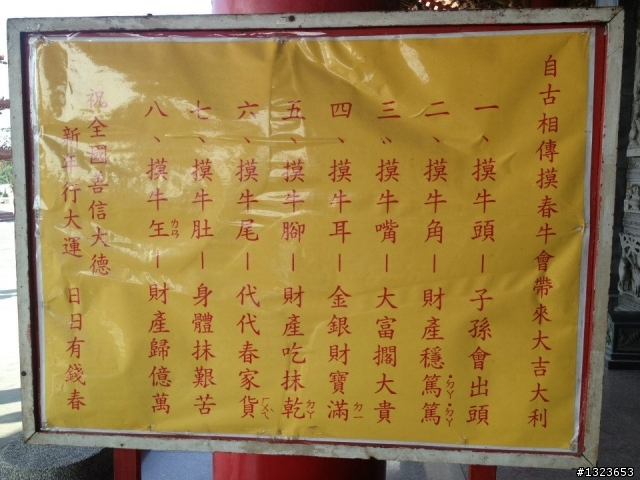 自古相傳摸春牛會帶來大吉大利
一、摸牛頭－子孫會出頭
二、摸牛角－財產穩篤篤
三、摸牛嘴－大富擱大貴
四、摸牛耳－金銀財寶滿
五、摸牛腳－財產吃抹乾
六、摸牛尾－代代春家貨
七、摸牛肚－身體抹艱苦
八、摸牛－財產歸億萬
祝全國善信大德
新年行大運 日日有錢春
#1323653